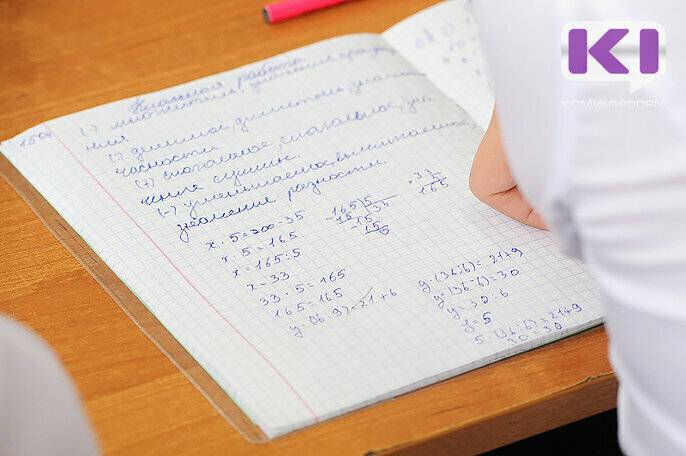 КИ
КОМИИНФОРМ
Классная работа.
(·) множитель, значение
ния
(:) делимое, делитель, значение
частности
(+) слагаемое, слагаемое, зна-
чение суммы.
(-) уменьшаемое, вычитаемое,
значение разности.
x · 5 = 200 - 35
x · 5 = 165
x = 165 : 5
x = 33
33 · 5 = 165
165 = 165
-165 5
15 33
-15
15
0
33
5
165
y · (36 : 6) = 21 + 9
y · (36 : 6) = 30
y = 30 : 6
y = 5
5 · (36 : 6) = 21 + 9
30 = 30